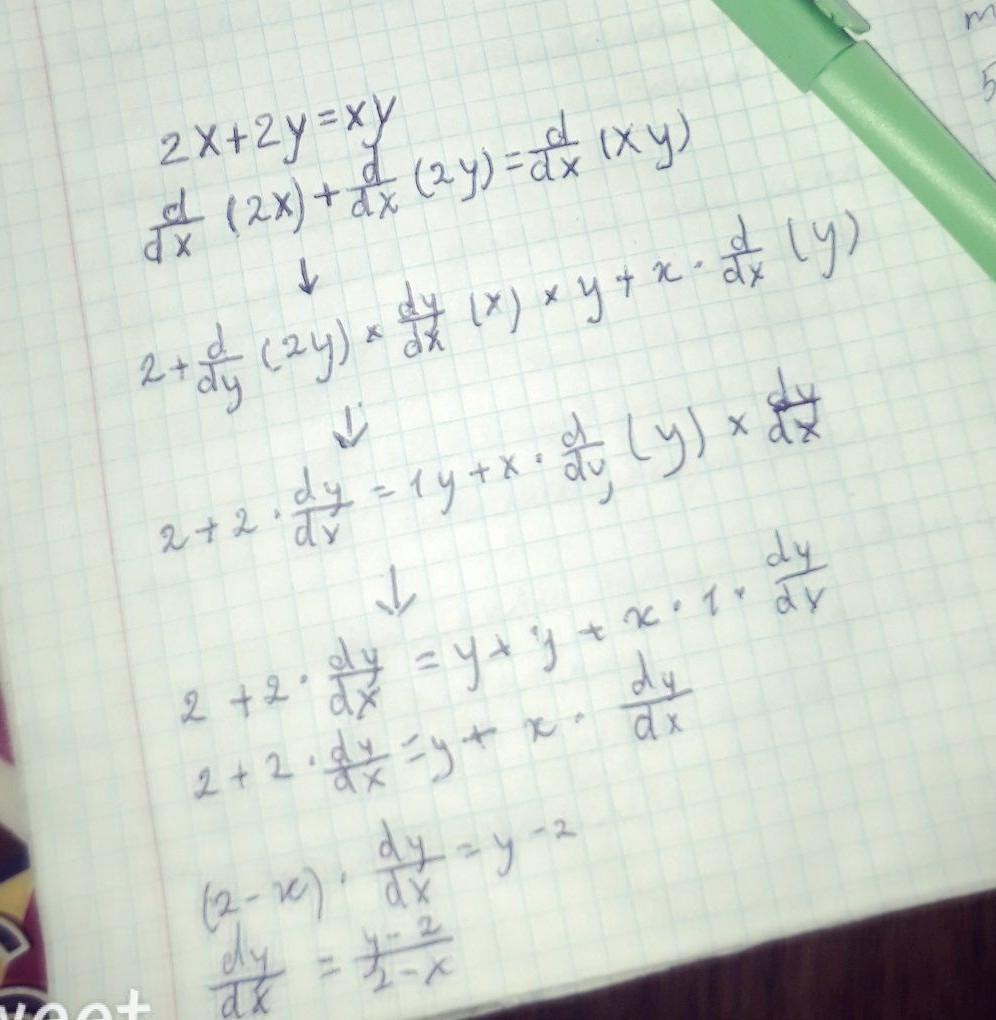 2x+2y=xy
d/dx (2x) + d/dx (2y) = d/dx (xy)
↓
2 + d/dy (2y) × dy/dx (x) × y + x · d/dx (y)
↓
2 + 2 · dy/dx = 1y + x · d/dy (y) × dy/dx
↓
2 + 2 · dy/dx = y + y + x · 1 · dy/dx
2 + 2 · dy/dx = y + x · dy/dx
(2-x) · dy/dx = y - 2
dy/dx = y-2/2-x
m
5